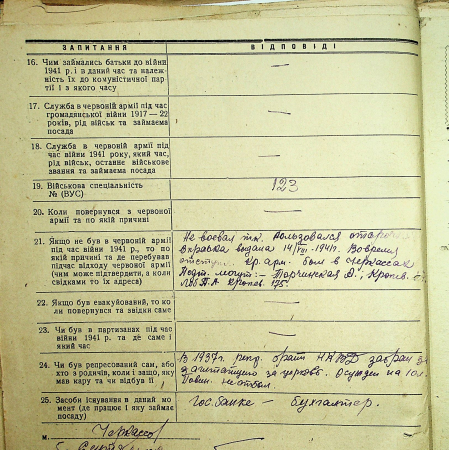 ЗАПИТАННЯ ВІДПОВІДІ
16. Чим займались батьки до війни
1941 р. і в даний час та належ-
ність їх до комуністичної пар-
тії і з якого часу
—
17. Служба в червоній армії під час
громадянської війни 1917—22
років, рід військ та займаєма
посада
—
18. Служба в червоній армії під
час війни 1941 року, який час,
рід військ, останнє військове
звання та займаєма посада
—
19. Військова спеціальність
№ (ВУС)
123
20. Коли повернувся з червоної
армії та по якій причині
—
21. Якщо не був в червоній армії
під час війни 1941 р., то по
якій причині та де перебував
під час відходу червоної армії
(чим може підтвердити, а коли
свідками то їх адреса)
Не воевал т.к. пользовался отсрочкой
Справка выдана 14/VIII-1941 г. Во время
отступ. Кр. арм. был в Черкассах
могут:—
175.
22. Якщо був евакуйований, то ко-
ли повернувся та звідки саме
—
23. Чи був в партизанах під час
війни 1941 р. та де саме і
який час
—
24. Чи був репресований сам, або
хто з родичів, коли і защо, яку
мав кару та чи відбув її
В 1937 г. брат НКВД забран за
агитацию за церковь. Осужден на 10 л.
25. Засоби існування в даний мо-
мент (де працює і яку займає
посаду)
Госбанке — бухгалтер.
м. Черкассы